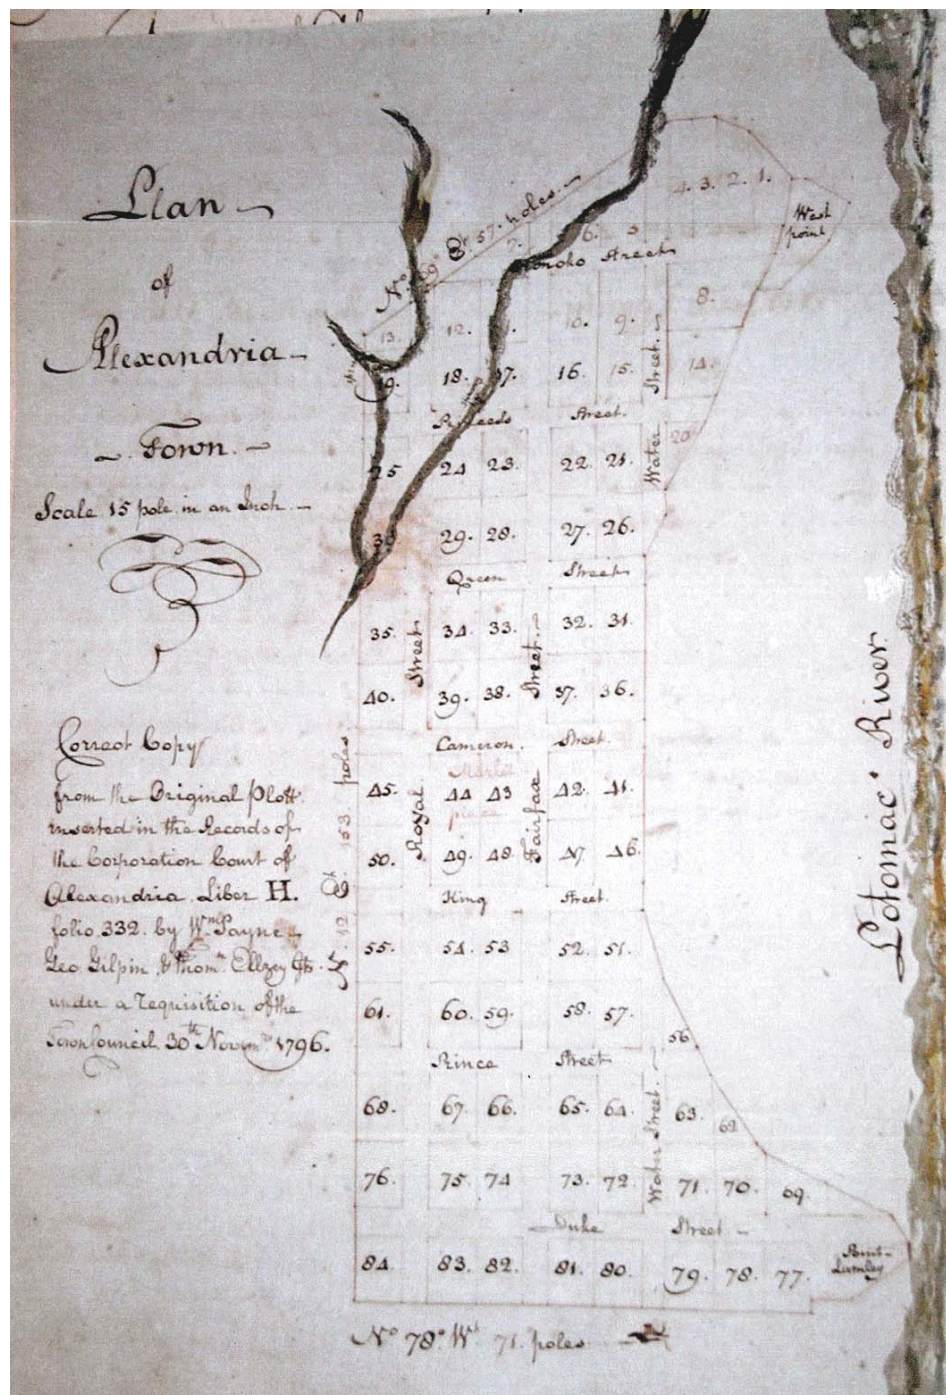 Plan
of
Alexandria
Town.
Scale 15 pole in an Inch.
Correct Copy
from the Original Plott
inserted in the Records of
the Corporation Court of
Alexandria Liber H.
folio 332. by Wm Payne
Geo. Gilpin & Thom. Ellzey
under a requisition of the
Town Council 30th Novem 1796.
No 69° Et 57. poles.
4. 3. 2. 1.
West
point
7. 6. 5
Oronoko Street
13. 12. 11. 10. 9. 8.
19. 18. 17. 16. 15. 14.
Princess Street.
Water Street.
25 24 23. 22. 21. 20
30 29. 28. 27. 26.
Queen Street
35. 34. 33. 32. 31.
Royal Street
Fairfax Street.
40. 39. 38. 37. 36.
Cameron. Street.
Market
place
45. 44 43 42. 41.
50. 49. 48. 47. 46.
King Street.
55. 54. 53 52. 51.
61. 60. 59. 58. 57. 56
Prince Street
68. 67. 66. 65. 64. 63. 62
Water Street.
76. 75. 74 73. 72. 71. 70. 69.
Duke Street
84. 83. 82. 81. 80. 79. 78. 77.
Point
Lumley
No 78° Wt 71. poles
So. 12 Et. 153 poles
Potomac River